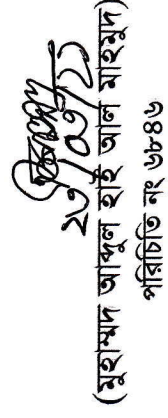 ২৩/০৭/২১
(মুহাম্মদ আব্দুল হাই আল মাহমুদ)
পরিচিতি নং ৬৮৪৬